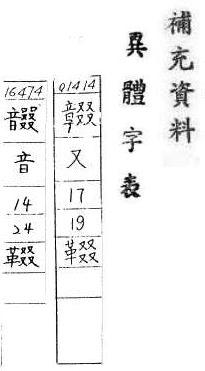 補充資料
異體字表
01414
又
17
19
16474
音
14
24